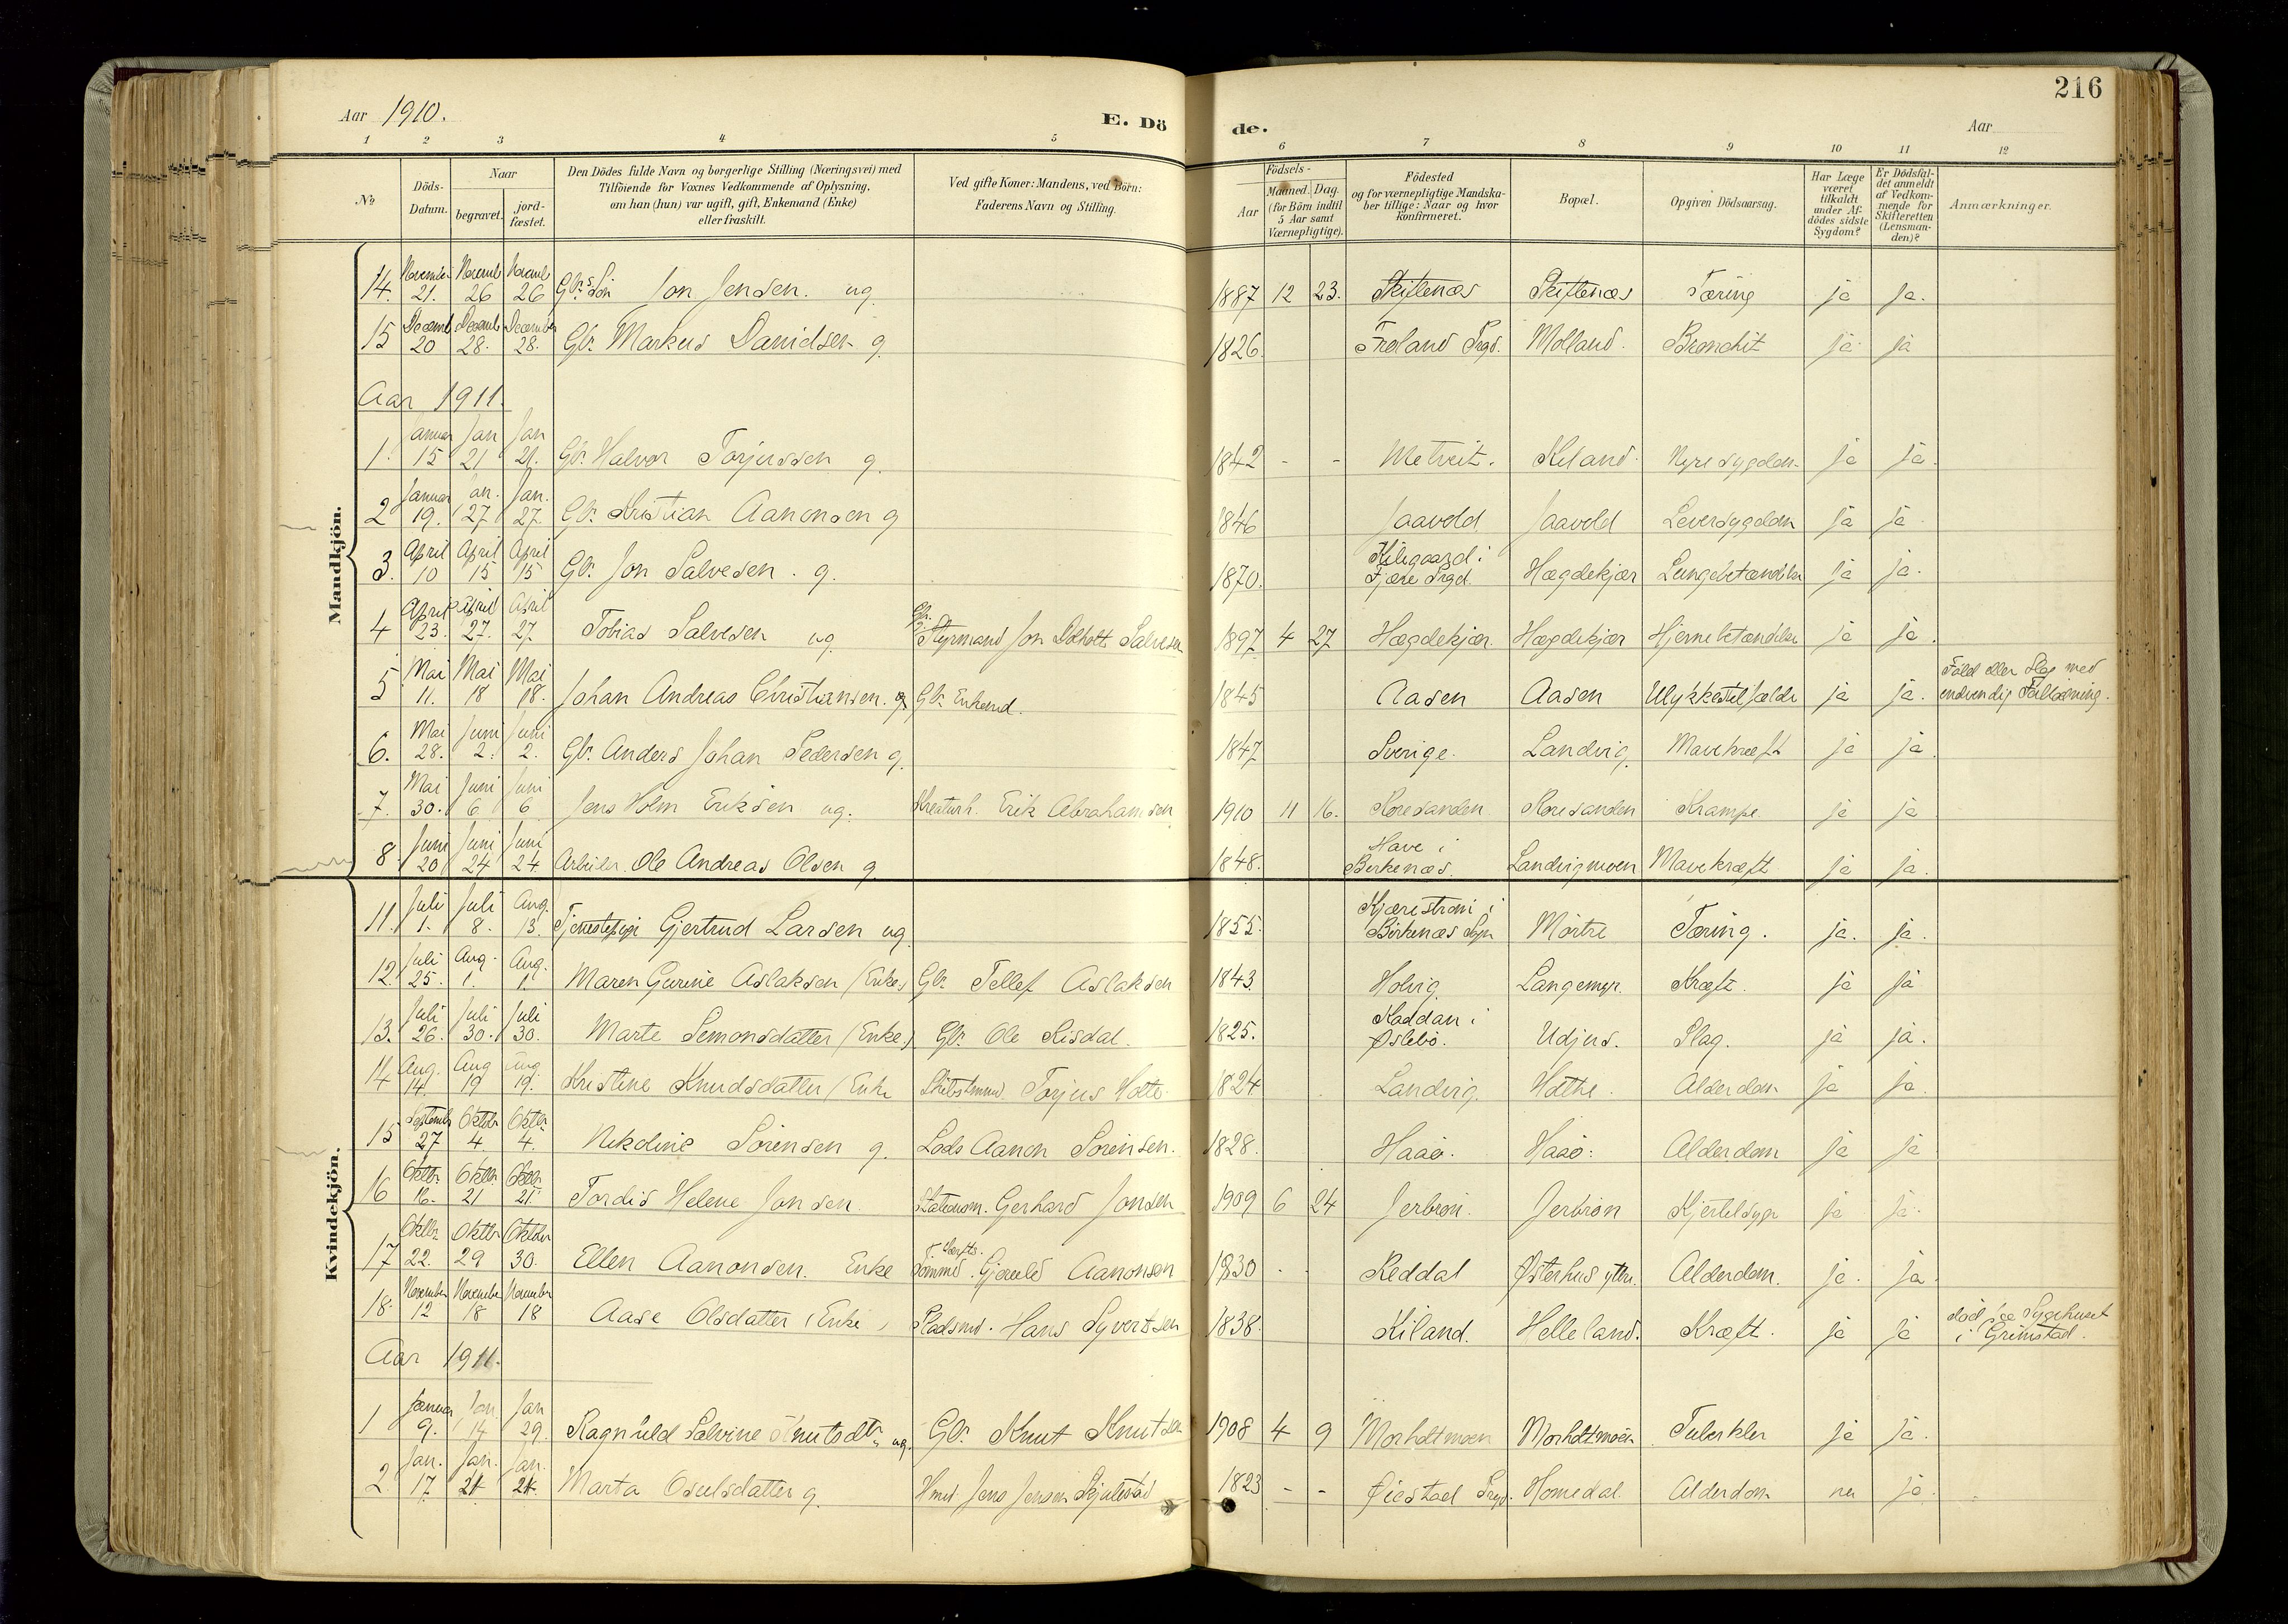 216
Aar 1910. E. Dö de. Aar
1 2 3 4 5 6 7 8 9 10 11 12
№
Döds-Datum.
Naar
begravet.
jord-fæstet.
Den Dödes fulde Navn og borgerlige Stilling (Næringsvei) med
Tilföiende for Voxnes Vedkommende af Oplysning,
om han (hun) var ugift, gift, Enkemand (Enke)
eller fraskilt.
Ved gifte Koner: Mandens, ved Börn:
Faderens Navn og Stilling.
Födsels-
Aar
Maaned. Dag.
(for Börn indtil
5 Aar samt
Værnepligtige).
Födested
og for værnepligtige Mandska-
ber tillige: Naar og hvor
konfirmeret.
Bopæl.
Opgiven Dödsaarsag.
Har Læge
været
tilkaldt
under Af-
dödes sidste
Sygdom?
Er Dödsfal-
det anmeldt
af Vedkom-
mende for
Skifteretten
(Lensman-
den)?
Anmærkninger.
Mandkjön.
14. November 21. Novemb 26 Novemb 26 Gbr.s Sön Jon Jensen. ug. 1887 12 23. Skiftenæs Skiftenæs Tæring ja ja.
15 Decemb 20 Decemb 28. December 28. Gbr. Markus Danidsen g. 1826. Froland Prgd. Molland. Bronchit ja ja
Aar 1911.
1. Januar 15 Jan 21 Jan 21. Gbr. Halvor Torjussen g. 1842 - - Metveit. Kiland. Nyresygdom. ja ja.
2 Januar 19. Jan. 27 Jan. 27. Gbr. Kristian Aanonsen g 1846 Jaavold Jaavold Leversygdom ja ja.
3. April 10 April 15 April 15 Gbr. Jon Salvesen. g. 1870. i Fjære Prgd. Hægdekjær Lungebetændelse ja ja.
4 April 23. April 27. April 27 Tobias Salvesen ug. Gbr. Styrmand Jon Salvesen 1897 4 27 Hægdekjær. Hægdekjær Hjernebetændelse ja ja.
5 Mai 11. Mai 18 Mai 18. Johan Andreas Christiansen. Gbr. Enkemd. 1845 Aasen Aasen Ulykkestilfælde ja ja. Fald eller Slag med
indvendig Forblødning.
6. Mai 28. Juni 2. Juni 2. Gbr. Anders Johan Pedersen g. 1847 Sverige. Landvig Mavekræft ja ja.
7. Mai 30. Juni 6 Juni 6 Jens Holm Eriksen ug. Kreaturh. Erik Abrahamsen 1910 11 16. Roresanden Roresanden Krampe. ja ja
8 Juni 20 Juni 24 Juni 24. Arbeider Ole Andreas Olsen g 1848. Have i Birkenæs. Landvigmoen Mavekræft ja ja.
Kvindekjön.
11. Juli 1. Juli 8. Aug. 13. Tjenestepige Gjertrud Larsen ug. 1855. i Birkenæs Sogn Mörtre Tæring. ja. ja.
12. Juli 25. Aug. 1. Aug. 1. Maren Gurine Aslaksen (Enke) Gbr. Tellef Aslaksen 1843. Holvig Langemyr. Kræft. ja ja
13. Juli 26. Juli 30. Juli 30. Marte Simonsdatter (Enke.) Gbr. Ole Risdal. 1825. i Øslebö. Udjus. Slag. ja ja.
14 Aug. 14. Aug 19 Aug. 19. Kristine Knudsdatter (Enke Skibstmmd. Torjus Holte 1824 Landvig. Holthe. Alderdom ja ja.
15 September 27 Oktobr 4 Oktbr. 4. Nikoline Sörensen g. Lods Aanon Sörensen. 1828. Haaö. Haaö. Alderdom ja ja
16 Oktbr. 16. Oktbr 21 Oktbr. 21 Tordis Helene Jonsen. Gerhard Jonsen 1909 6 24 Jerbron. Jerbron Kjertelsyge ja ja.
17 Oktbr. 22. Oktbr 29 Oktober 30. Ellen Aanonsen. Enke Gjeruld Aanonsen 1830 - - Reddal Østerhus ytre. Alderdom. ja. ja.
18. November 12 November 18 November 18 Aase Olsdatter (Enke) Pladsmd. Hans Syvertsen 1838. Kiland. Helleland. Kræft. ja ja död paa Sygehuset
i Grimstad.
Aar 1911.
1 Januar 9. Jan 14 Jan 29. Ragnhild Salvine Knutsdtr. ug. Gbr. Knut Knutsen 1908 4 9 Morholtmoen Morholtmoen Tuberkler ja ja.
2 Jan. 17 Jan. 21 Jan. 21. Marta Osulsdatter g. Hmd. Jens Jensen 1823 - - Øiestad Prgd. Homedal. Alderdom nei ja.